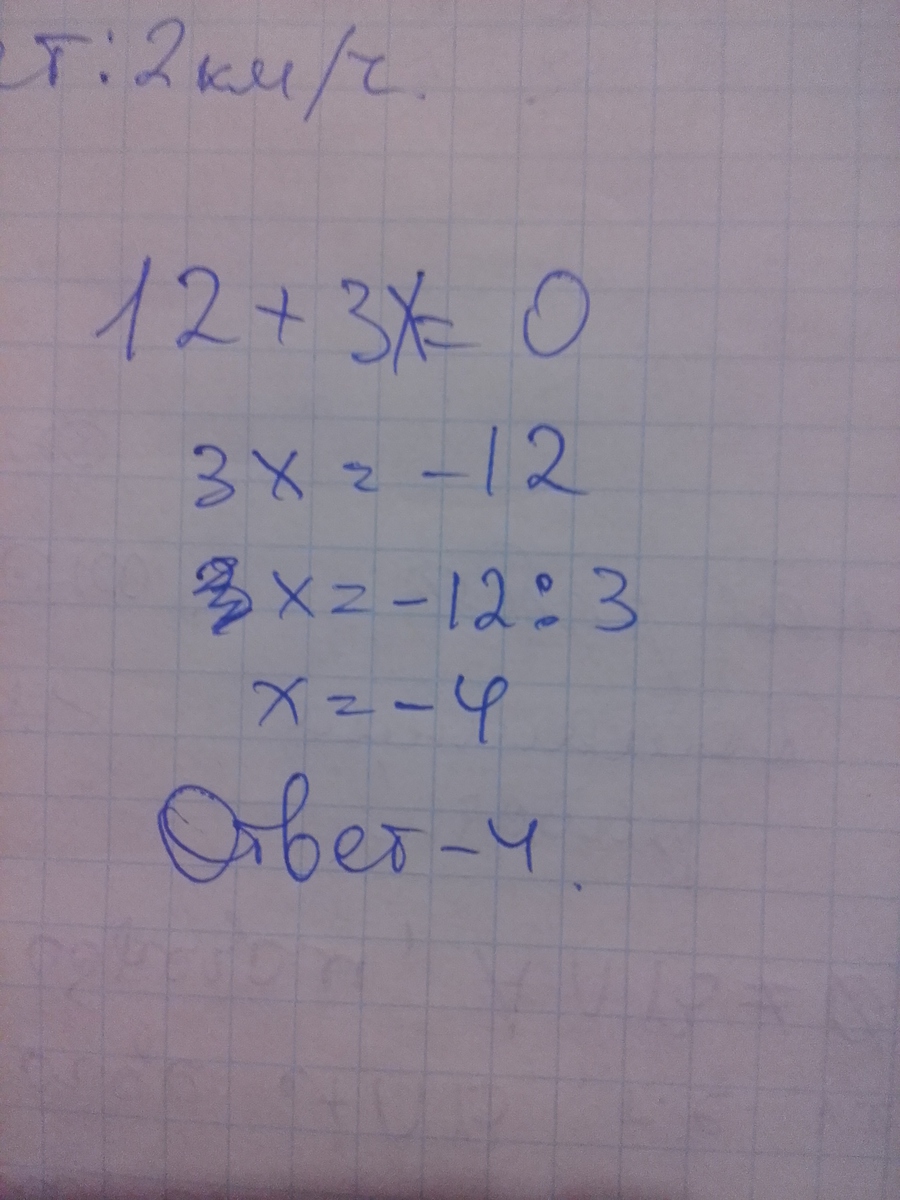 ет: 2 км/ч.
12 + 3x = 0
3x = -12
x = -12 : 3
x = -4
Ответ -4.